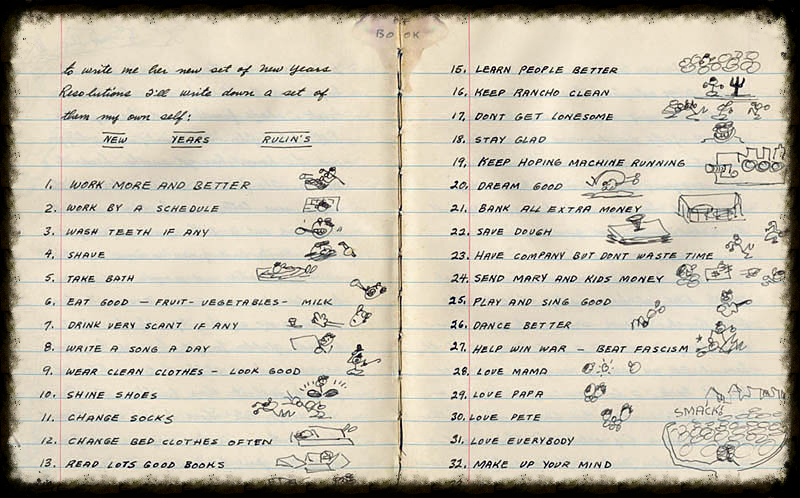 BOOK
to write me her new set of New Years
Resolutions I'll write down a set of
them my own self:
NEW YEARS RULIN'S
1. WORK MORE AND BETTER
2. WORK BY A SCHEDULE
3. WASH TEETH IF ANY
4. SHAVE
5. TAKE BATH
6. EAT GOOD — FRUIT - VEGETABLES - MILK
7. DRINK VERY SCANT IF ANY
8. WRITE A SONG A DAY
9. WEAR CLEAN CLOTHES — LOOK GOOD
10. SHINE SHOES
11. CHANGE SOCKS
12. CHANGE BED CLOTHES OFTEN
13. READ LOTS GOOD BOOKS
15. LEARN PEOPLE BETTER
16. KEEP RANCHO CLEAN
17. DONT GET LONESOME
18. STAY GLAD
19. KEEP HOPING MACHINE RUNNING
20. DREAM GOOD
21. BANK ALL EXTRA MONEY
22. SAVE DOUGH
23. HAVE COMPANY BUT DONT WASTE TIME
24. SEND MARY AND KIDS MONEY
25. PLAY AND SING GOOD
26. DANCE BETTER
27. HELP WIN WAR — BEAT FASCISM
28. LOVE MAMA
29. LOVE PAPA
30. LOVE PETE
SMACK!
31. LOVE EVERYBODY
32. MAKE UP YOUR MIND